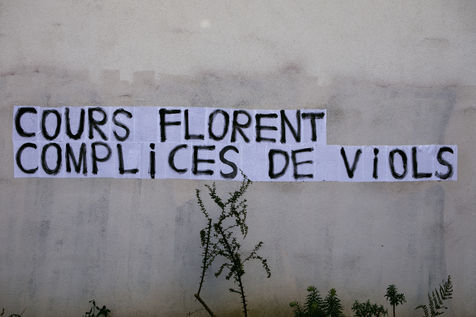 COURS FLORENT
COMPLICES DE VIOLS